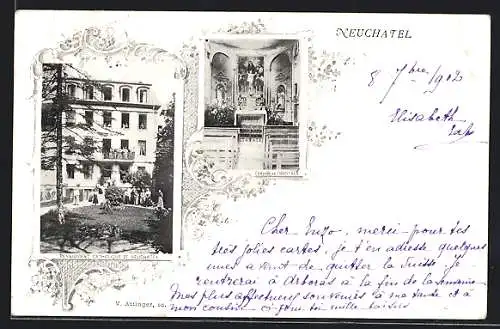 NEUCHATEL
8 7bre 1902
Elisabeth
PENSIONNAT CATHOLIQUE DE NEUCHATEL
V. Attinger,
Cher Enzo, merci pour tes
très jolies cartes, je t'en adresse quelques
unes avant de quitter la Suisse. Je
rentrerai à Arbois à la fin de la semaine
Mes plus affectueux souvenirs à ma tante et à
mon cousin ci-joint mille baisers